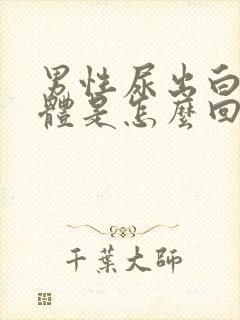 男性尿出白
體是怎麼回
千葉大師